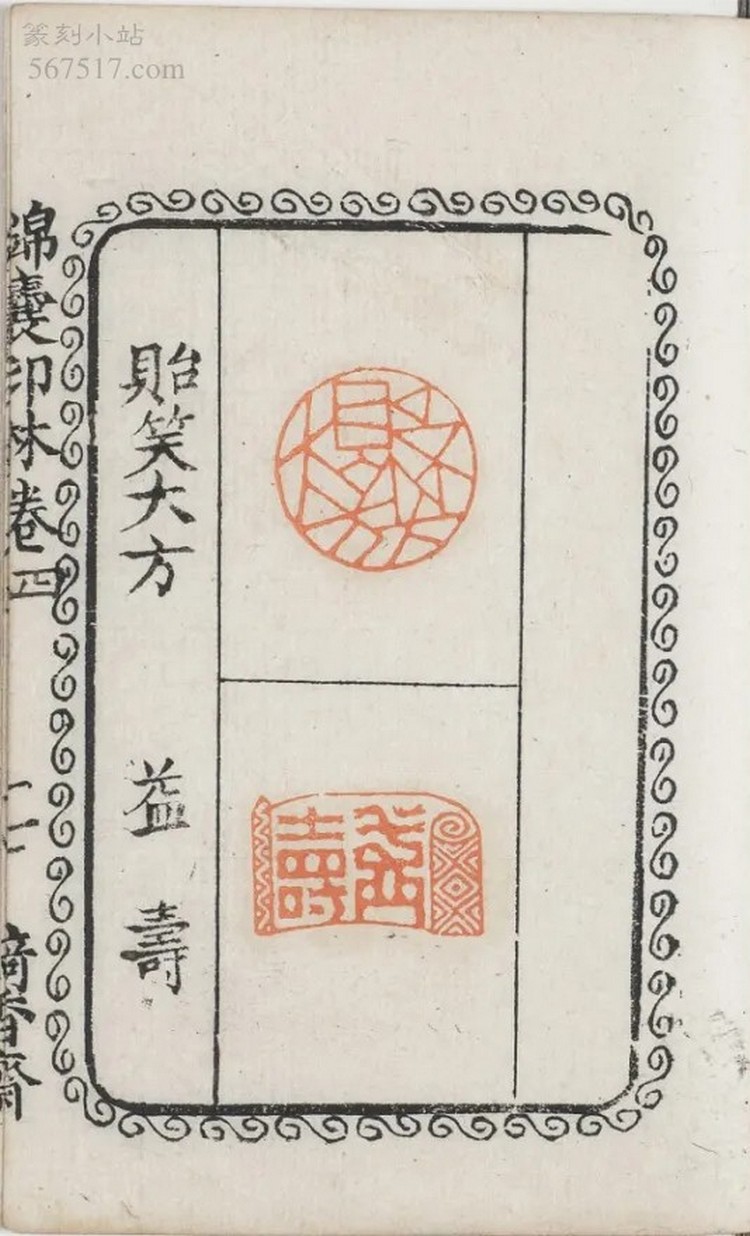 篆刻小站
567517.com
貽笑大方
益壽
益壽
錦囊印林卷四
二十
摘香齋